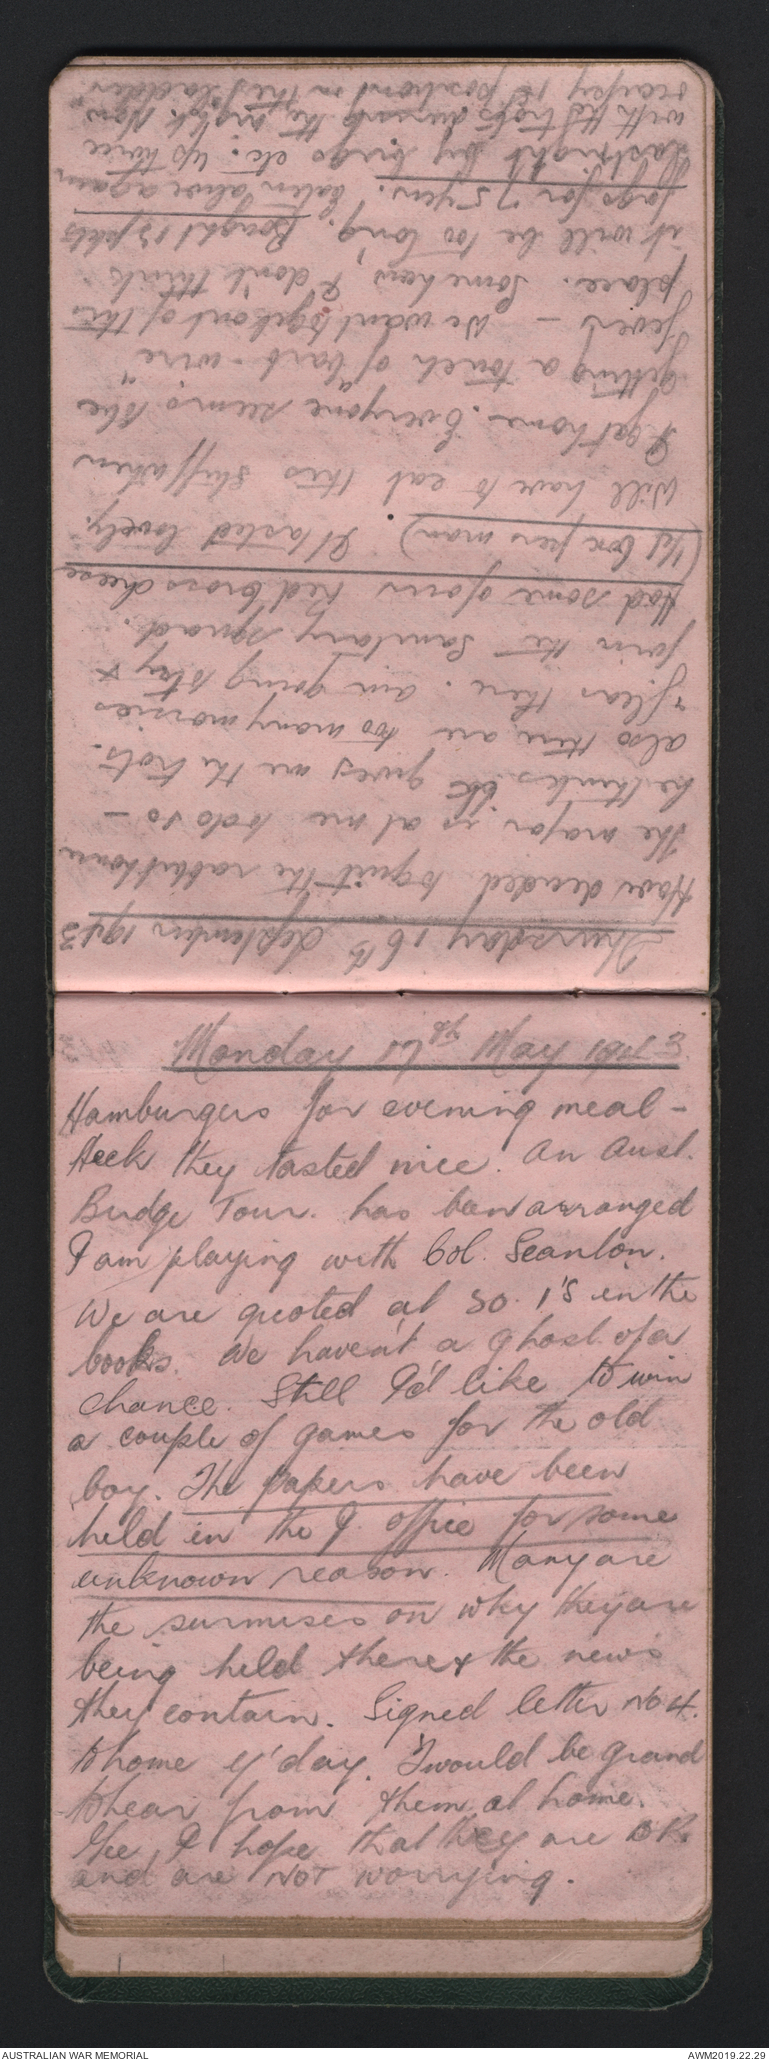 Thursday 16th September 1943
Have decided to quit the rabbit house
the major is at me to do so -
he thinks it gives me the trots.
also there are too many mossies
& fleas there. am going stay &
join the Sanitary Squad.
Had some of our Red Cross cheese
(1/4 box per man) It tasted lovely.
Will have to eat this stuff when
I get home. Everyone seems to be
getting a touch of "barb-wire"
fever - We want to get out of this
place. Somehow, I don't think
it will be too long. Bought 13 pkts
fags for 7 5 yen. Eaten alive again
last night by bugs etc. Up twice
with the trots during the night. Now
occupy 15 position in the "ladder"
Monday 17th May 1943
Hamburgers for evening meal -
Heck they tasted nice. An Aust.
Bridge Tour. has been arranged
I am playing with Col. Scanlon.
We are quoted at 50. 1's in the
books. We haven't a ghost of a
chance. Still I'd like to win
a couple of games for the old
boy. The papers have been
held in the I. office for some
unknown reason. Many are
the surmises on why they are
being held there & the news
they contain. Signed letter No 4.
to home y'day. 'Twould be grand
to hear from them at home.
Gee, I hope that they are O.K.
and are NOT worrying.
AUSTRALIAN WAR MEMORIAL
AWM2019.22.29